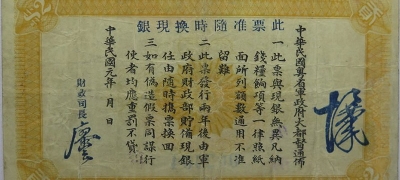 此票准隨時換現銀
中華民國粵省軍政府大都督通佈
一此票與現銀無異凡納
錢糧餉項等一律照紙
面所列額數通用不准
留難
二此票發行兩年後由軍
政府財政部貯備現銀
任由隨時攜票換回
三如有偽造假票同謀行
使者均應重罰不貸
中華民國元年 月 日
財政司長